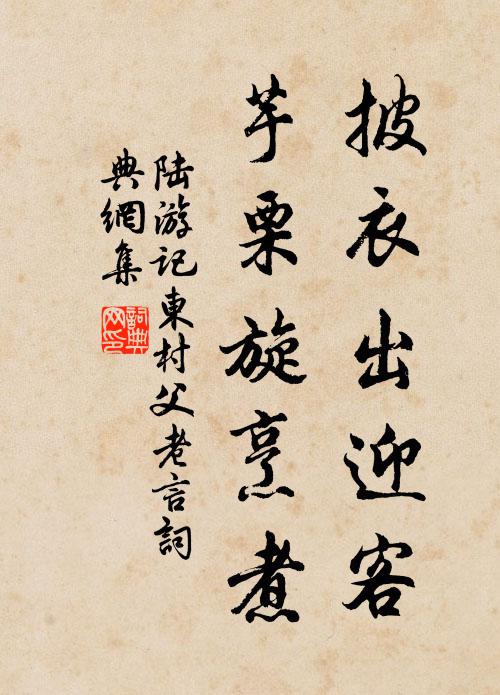 披衣出迎客
芋栗旋烹煮
陆游记東村父老言詞
典網集
詞典
网印